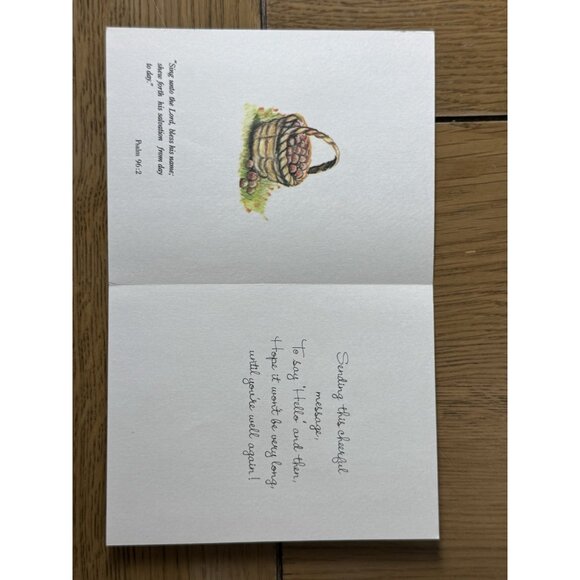 "Sing unto the Lord, bless his name;
shew forth his salvation from day
to day."
Psalm 96:2
Sending this cheerful
message,
To say 'Hello' and then,
Hope it won't be very long,
until you're well again!